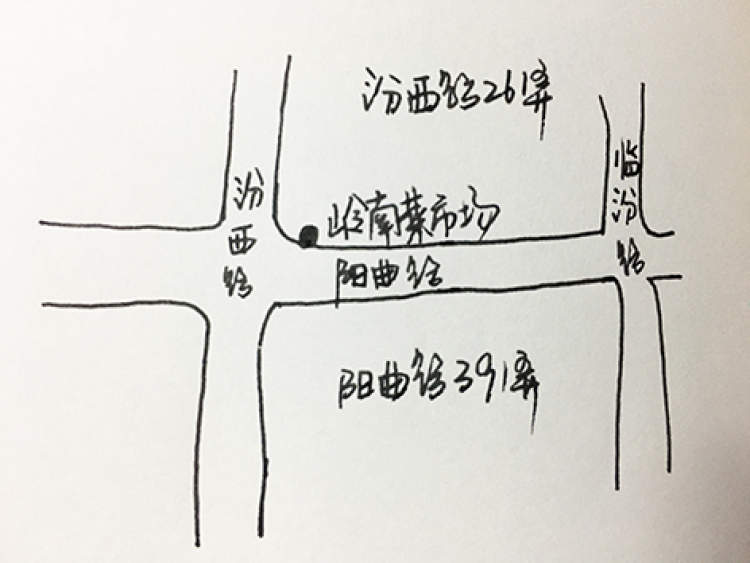 汾西路261弄
临汾路
汾西路
岭南菜市场
阳曲路
阳曲路391弄